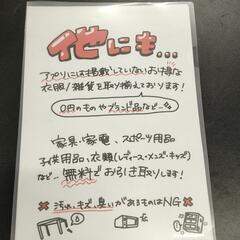 他にも…
アプリには掲載していないお得な
衣服/雑貨を取り揃えております!
0円のものやブランド品など…
家具・家電、スポーツ用品
子供用品、衣類(レディース・メンズ・キッズ)
など… 無料でお引き取りします!
✖汚れ、キズ、臭いがあるものはNG✖